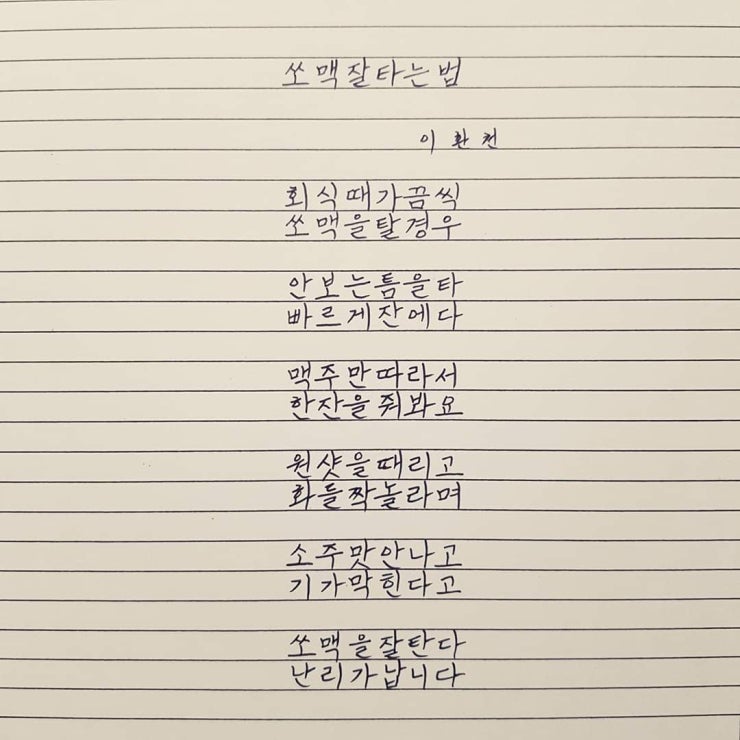 쏘맥잘타는법
이환천
회식때가끔씩
쏘맥을탈경우
안보는틈을타
빠르게잔에다
맥주만따라서
한잔을줘봐요
원샷을때리고
화들짝놀라며
소주맛안나고
기가막힌다고
쏘맥을잘탄다
난리가납니다